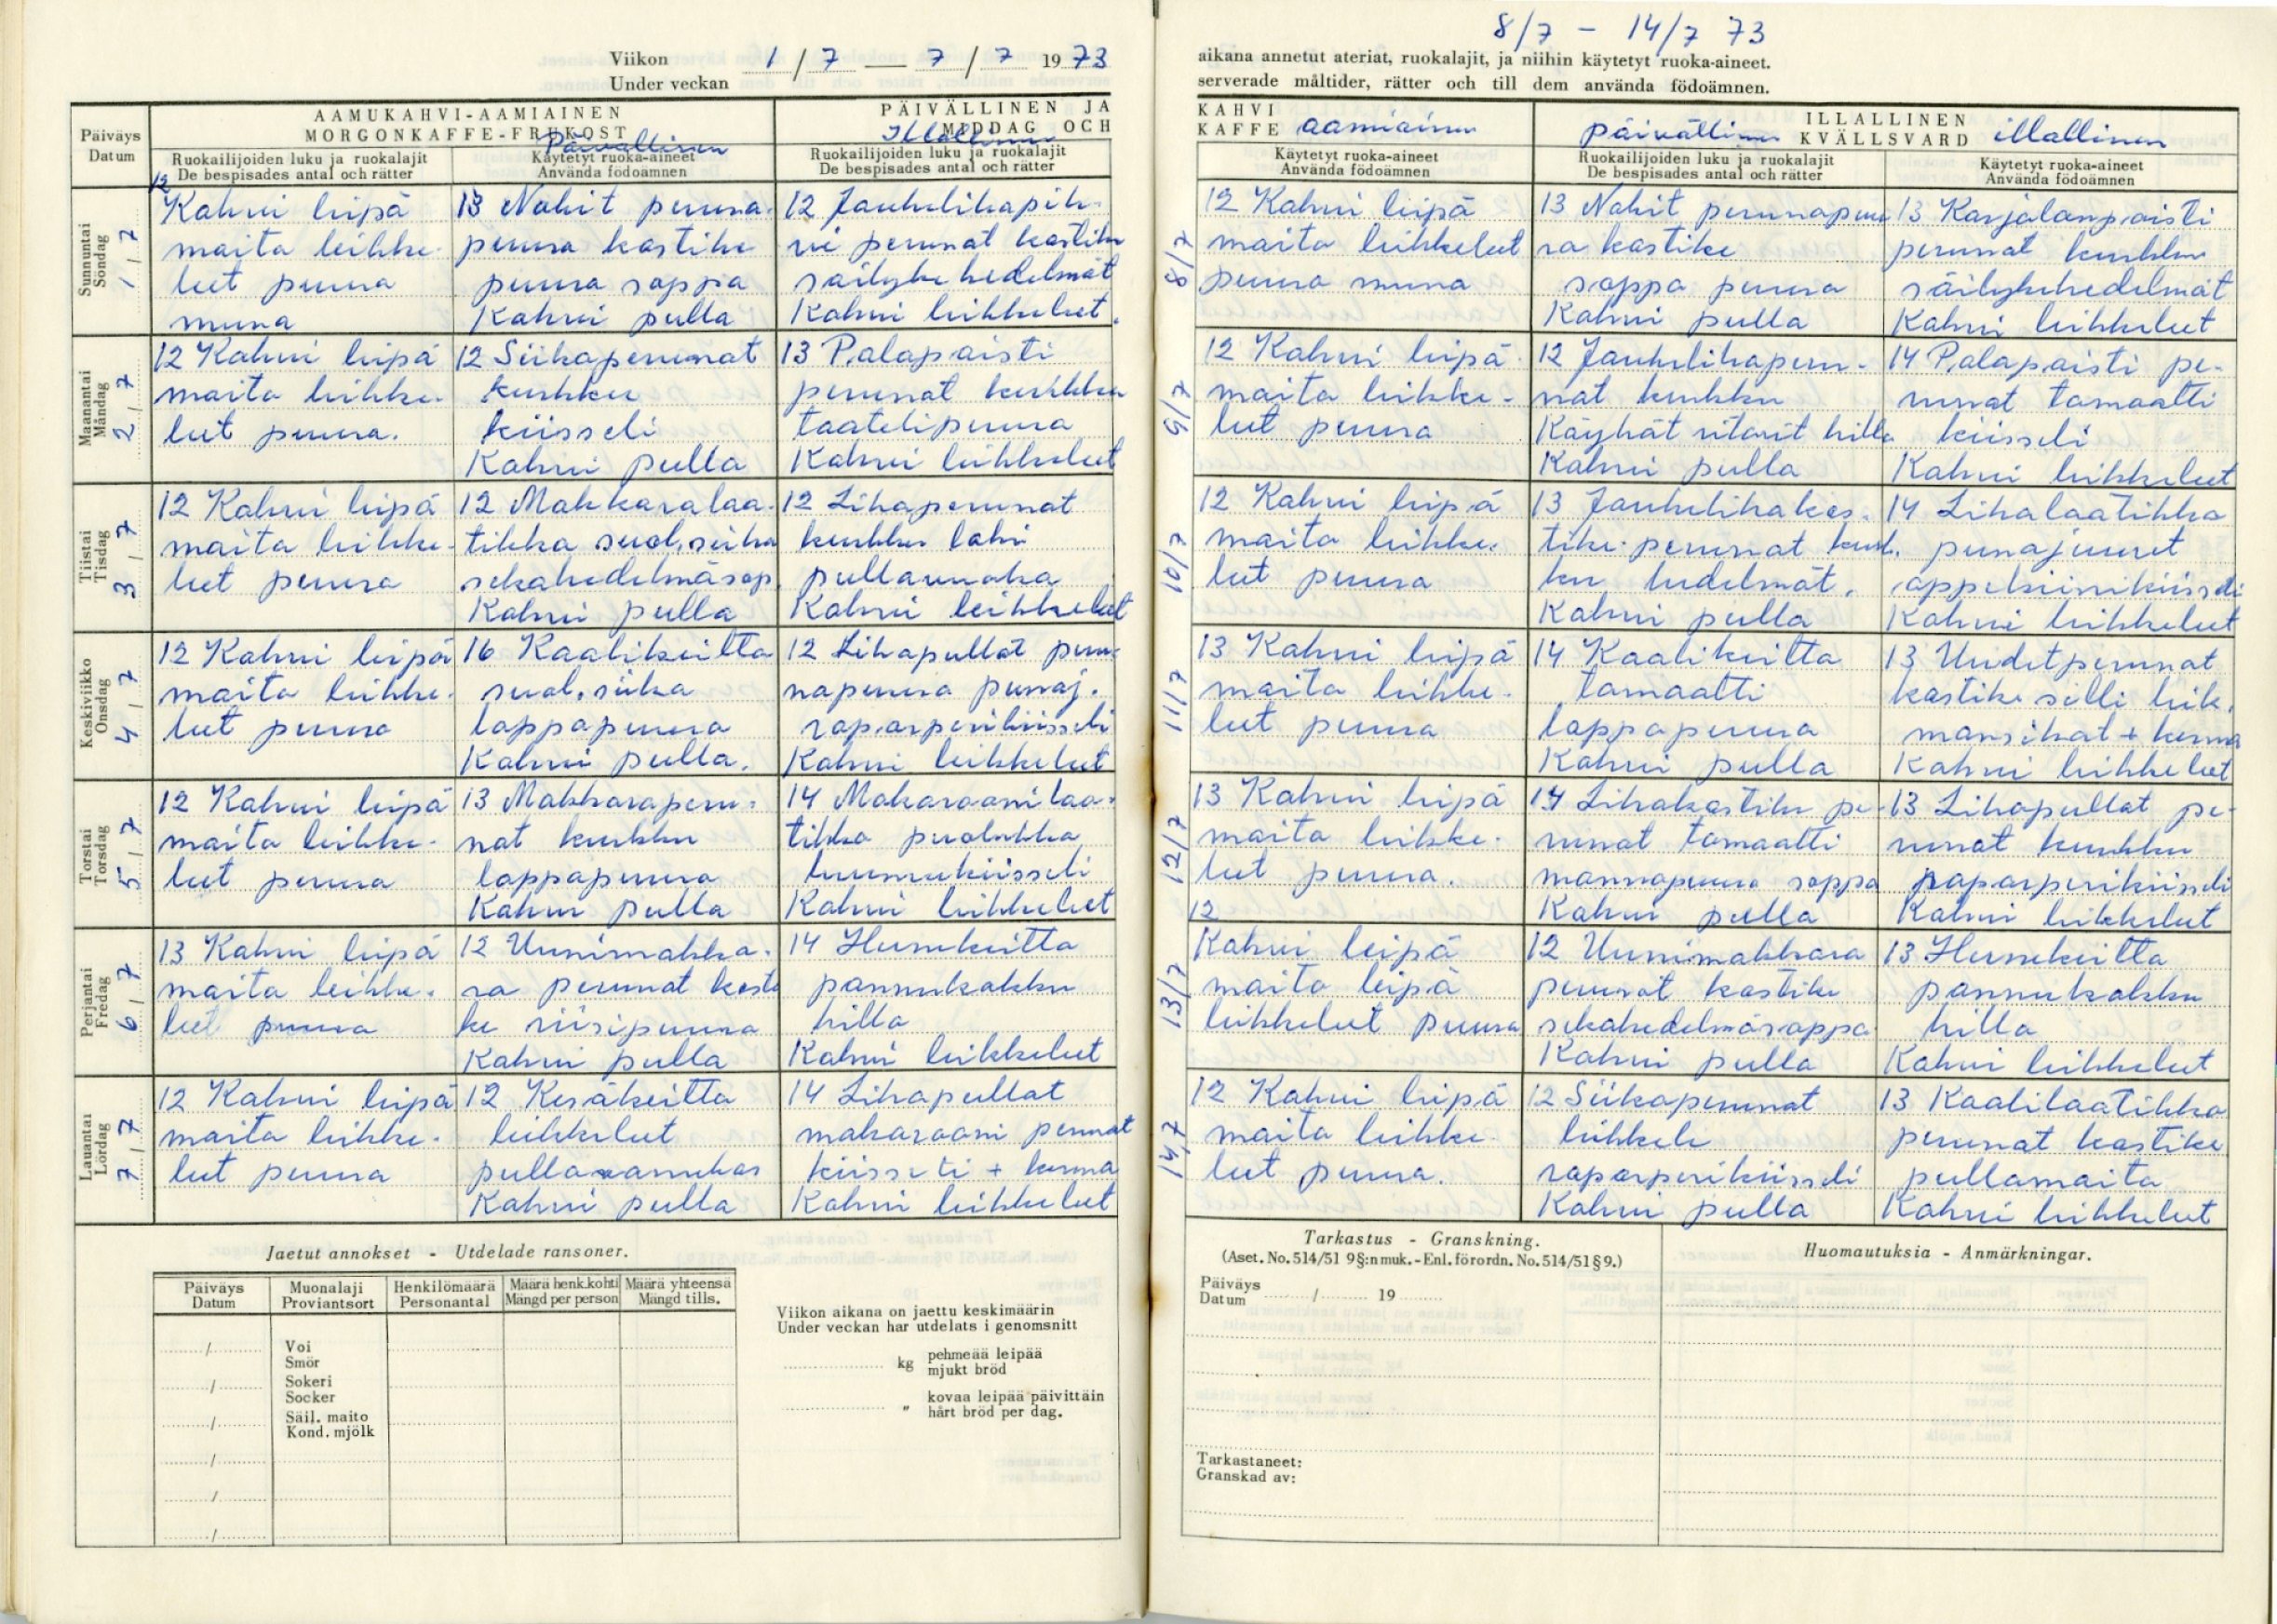 Viikon 1/7 — 7/7 1973
Under veckan
AAMUKAHVI-AAMIAINEN
MORGONKAFFE-FRUKOST
Päivällinen
PÄIVÄLLINEN JA
MIDDAG OCH
Illallinen
Päiväys
Datum
Ruokailijoiden luku ja ruokalajit
De bespisades antal och rätter
Käytetyt ruoka-aineet
Använda födoämnen
Ruokailijoiden luku ja ruokalajit
De bespisades antal och rätter
Sunnuntai
Söndag
1/7
12
Kahvi leipä
maito leikke-
leet puuro
muna
13 Nakit peruna-
peuna kastike
puuro soppa
Kahvi pulla
12 Jauhelihapih-
vi perunat kastike
säilyke hedelmät
Kahvi leikkeleet.
Maanantai
Måndag
2/7
12 Kahvi leipä
maito leikke-
leet puuro.
12 Siikaperunat
kurkku
kiisseli
Kahvi pulla
13 Palapaisti
perunat kurkku
taatelipuuro
Kahvi leikkeleet
Tiistai
Tisdag
3/7
12 Kahvi leipä
maito leikke-
leet puuro
12 Makkaralaa-
tikko suol. siika
sekahedelmäsop.
Kahvi pulla
12 Lihaperunat
kurkku lohi
pullavanukas
Kahvi leikkeleet
Keskiviikko
Onsdag
4/7
12 Kahvi leipä
maito leikke-
leet puuro
16 Kaalikeitto
suol. siika
lappapuuro
Kahvi pulla.
12 Lihapullat peru-
napuuro punaj.
raparperikiisseli
Kahvi leikkeleet
Torstai
Torsdag
5/7
12 Kahvi leipä
maito leikke-
leet puuro
13 Makkaraperu-
nat kurkku
lappapuuro
Kahvi pulla
14 Makarooni laa-
tikko puolukka
luumukiisseli
Kahvi leikkeleet
Perjantai
Fredag
6/7
13 Kahvi leipä
maito leikke-
leet puuro
12 Uunimakka-
ra perunat kasti
ke riisipuuro
Kahvi pulla
14 Hernekeitto
pannukakku
hillo
Kahvi leikkeleet
Lauantai
Lördag
7/7
12 Kahvi leipä
maito leikke-
leet puuro
12 Kesäkeitto
leikkeleet
pullavanukas
Kahvi pulla
14 Lihapullat
makarooni perunat
kiisseli + kerma
Kahvi leikkeleet
Jaetut annokset - Utdelade ransoner.
Päiväys
Datum
Muonalaji
Proviantsort
Henkilömäärä
Personantal
Määrä henk.kohti
Mängd per person
Määrä yhteensä
Mängd tills.
Voi
Smör
Sokeri
Socker
Säil. maito
Kond. mjölk
Viikon aikana on jaettu keskimäärin
Under veckan har utdelats i genomsnitt
kg pehmeää leipää
mjukt bröd
" kovaa leipää päivittäin
hårt bröd per dag.
8/7 - 14/7 73
aikana annetut ateriat, ruokalajit, ja niihin käytetyt ruoka-aineet.
serverade måltider, rätter och till dem använda födoämnen.
KAHVI
KAFFE aamiainen
ILLALLINEN
päivällinen KVÄLLSVARD illallinen
Käytetyt ruoka-aineet
Använda födoämnen
Ruokailijoiden luku ja ruokalajit
De bespisades antal och rätter
Käytetyt ruoka-aineet
Använda födoämnen
8/7
12 Kahvi leipä
maito leikkeleet
puuro muna
13 Nakit perunapuu
ro kastike
soppa puuro
Kahvi pulla
13 Karjalanpaisti
perunat kurkku
säilykehedelmät
Kahvi leikkeleet
9/7
12 Kahvi leipä
maito leikke-
leet puuro
12 Jauhelihaperu-
nat kurkku
Köyhät ritarit hillo
Kahvi pulla
14 Palapaisti pe-
runat tomaatti
kiisseli
Kahvi leikkeleet
10/7
12 Kahvi leipä
maito leikke-
leet puuro
13 Jauhelihakas-
tike perunat kurk.
ku hedelmät.
Kahvi pulla
14 Lihalaatikko
punajuuret
appelsiinikiisseli
Kahvi leikkeleet
11/7
13 Kahvi leipä
maito leikke-
leet puuro
14 Kaalikeitto
tomaatti
lappapuuro
Kahvi pulla
13 Uudet perunat
kastike silli leik.
mansikat + kerma
Kahvi leikkeleet
12/7
13 Kahvi leipä
maito leikke-
leet puuro.
14 Lihakastike pe-
runat tomaatti
mannapuuro soppa
Kahvi pulla
13 Lihapullat pe-
runat kurkku
raparperikiisseli
Kahvi leikkeleet
13/7
12
Kahvi leipä
maito leipä
leikkeleet puuro
12 Uunimakkara
perunat kastike
sekahedelmäsoppa
Kahvi pulla
13 Hernekeitto
pannukakku
hillo
Kahvi leikkeleet
14/7
12 Kahvi leipä
maito leikke-
leet puuro.
12 Siikaperunat
leikkele
raparperikiisseli
Kahvi pulla
13 Kaalilaatikko
perunat kastike
pullamaito
Kahvi leikkeleet
Tarkastus - Granskning.
(Aset. No. 514/51 9§:n muk. - Enl. förordn. No. 514/51 § 9.)
Päiväys
Datum / 19
Tarkastaneet:
Granskad av:
Huomautuksia - Anmärkningar.